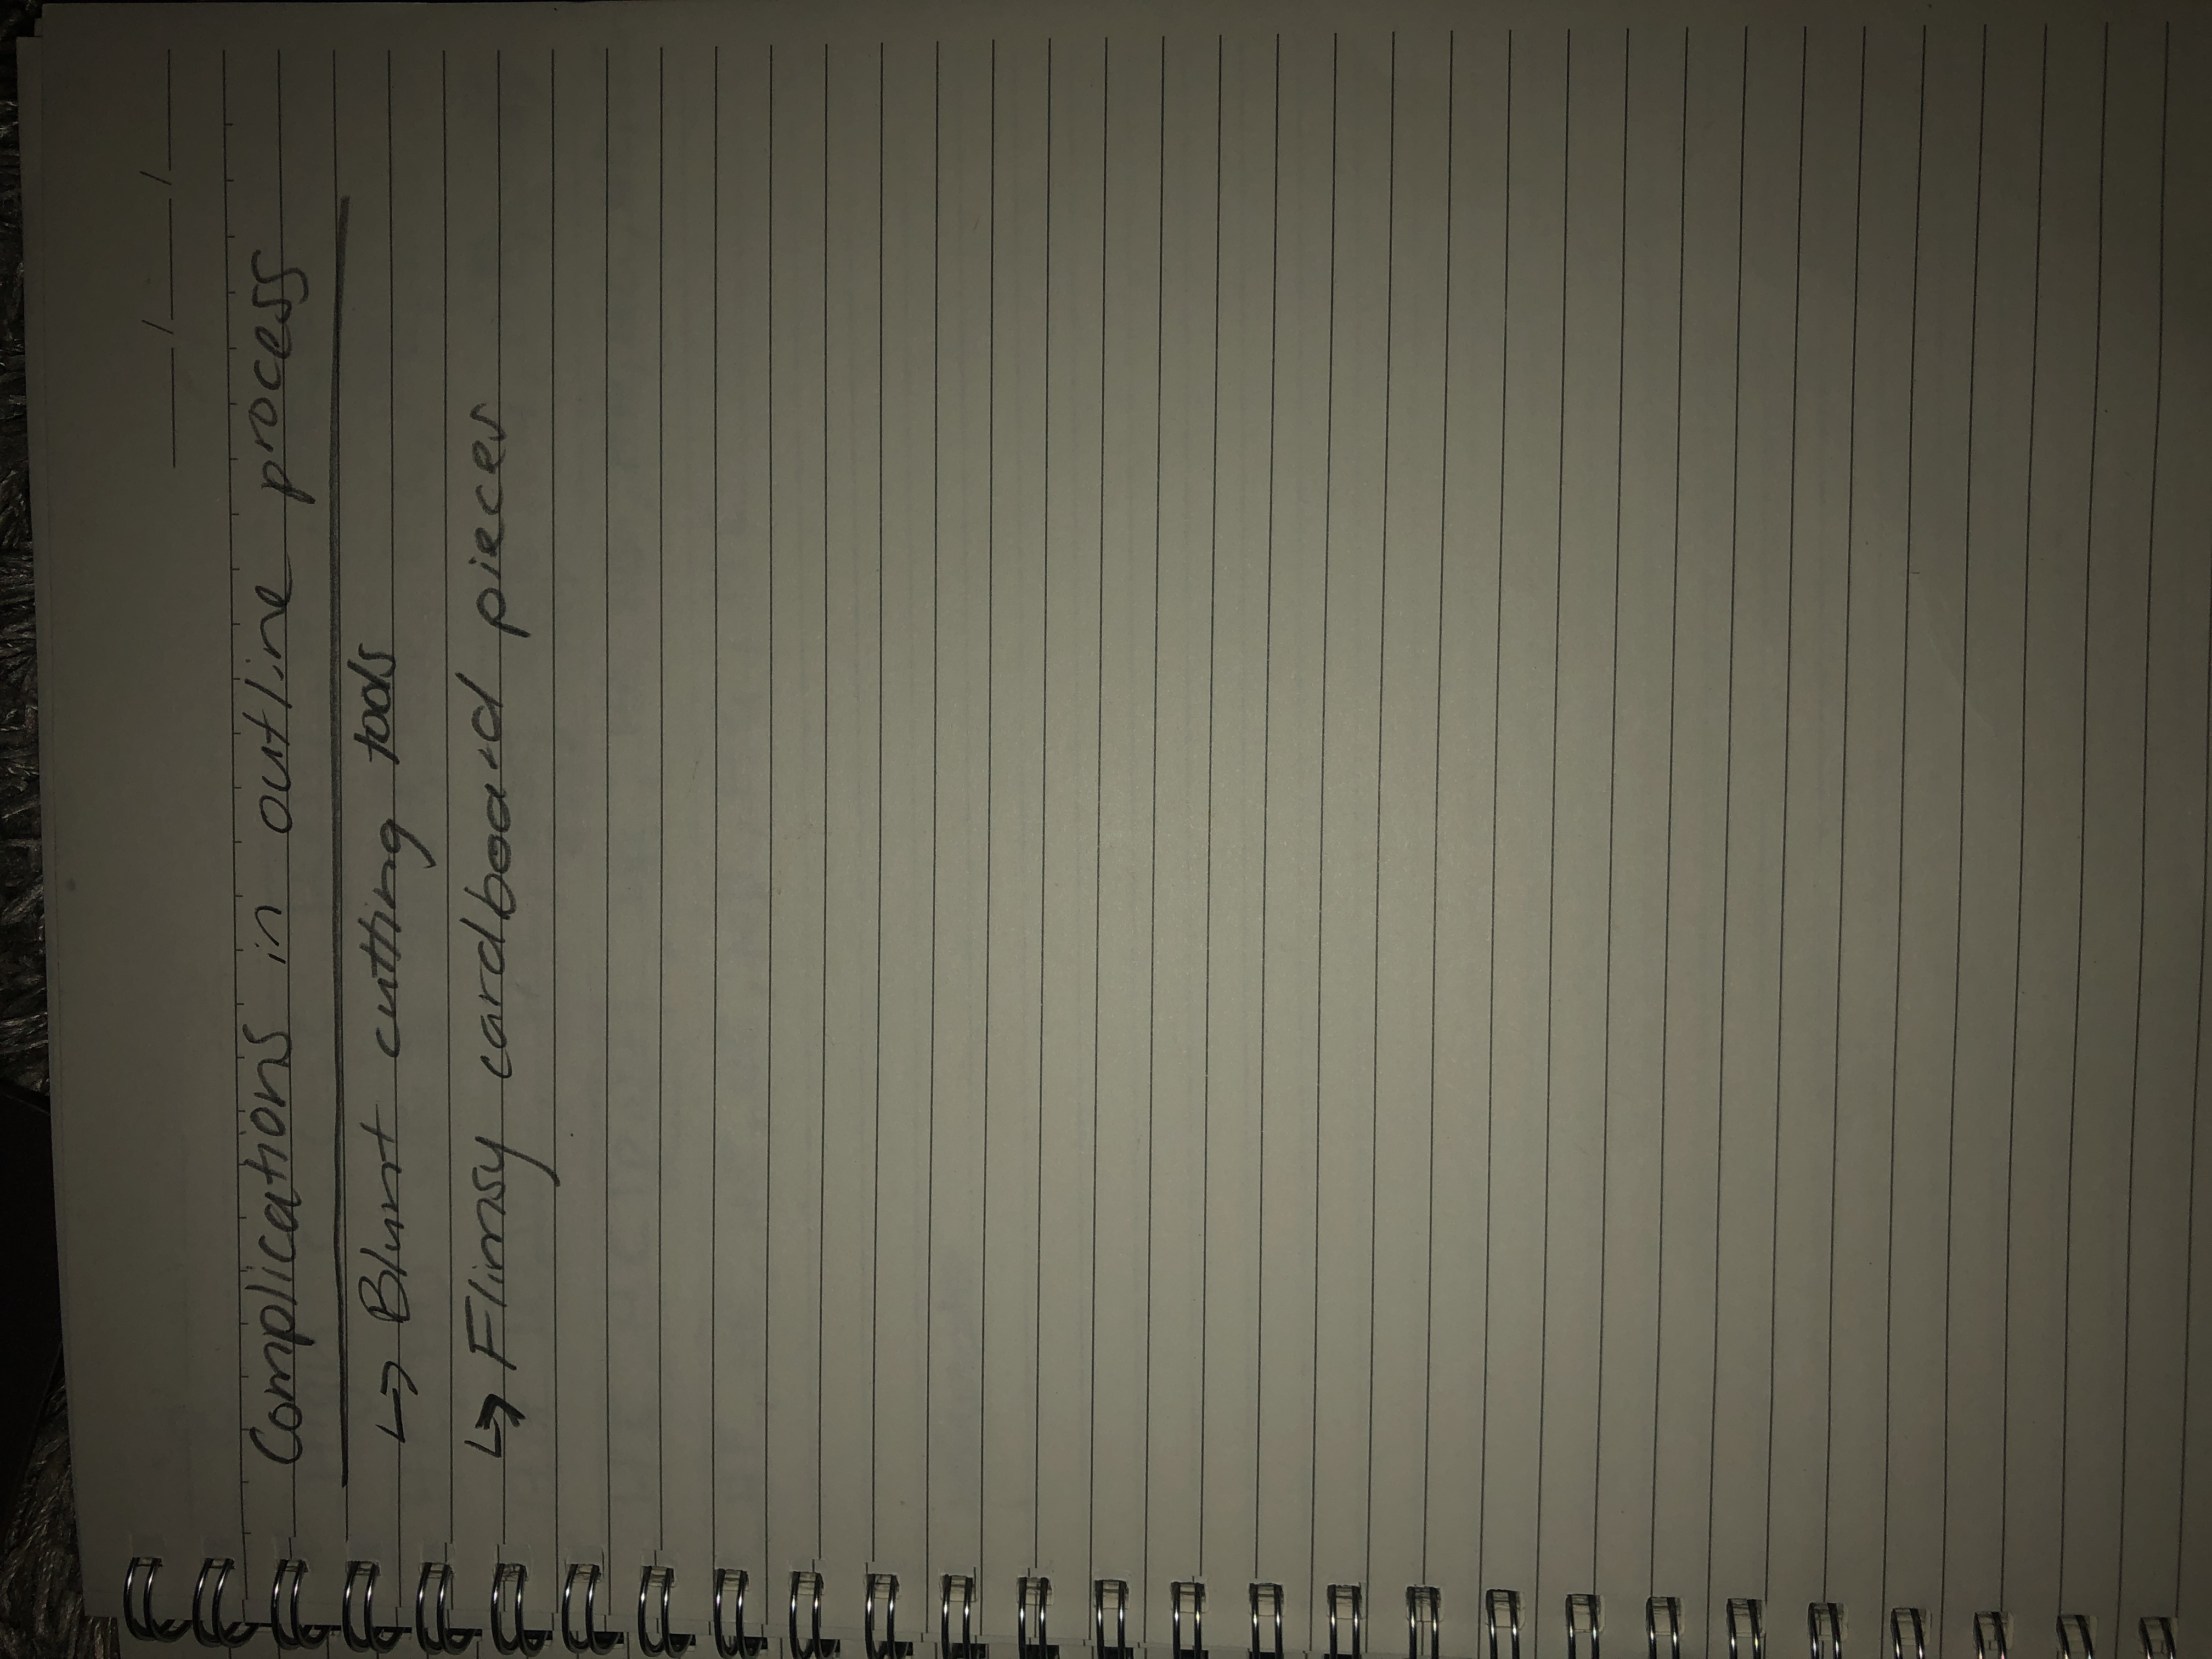 Complications in outline process
↳ Blunt cutting tools
↳ Flimsy cardboard pieces